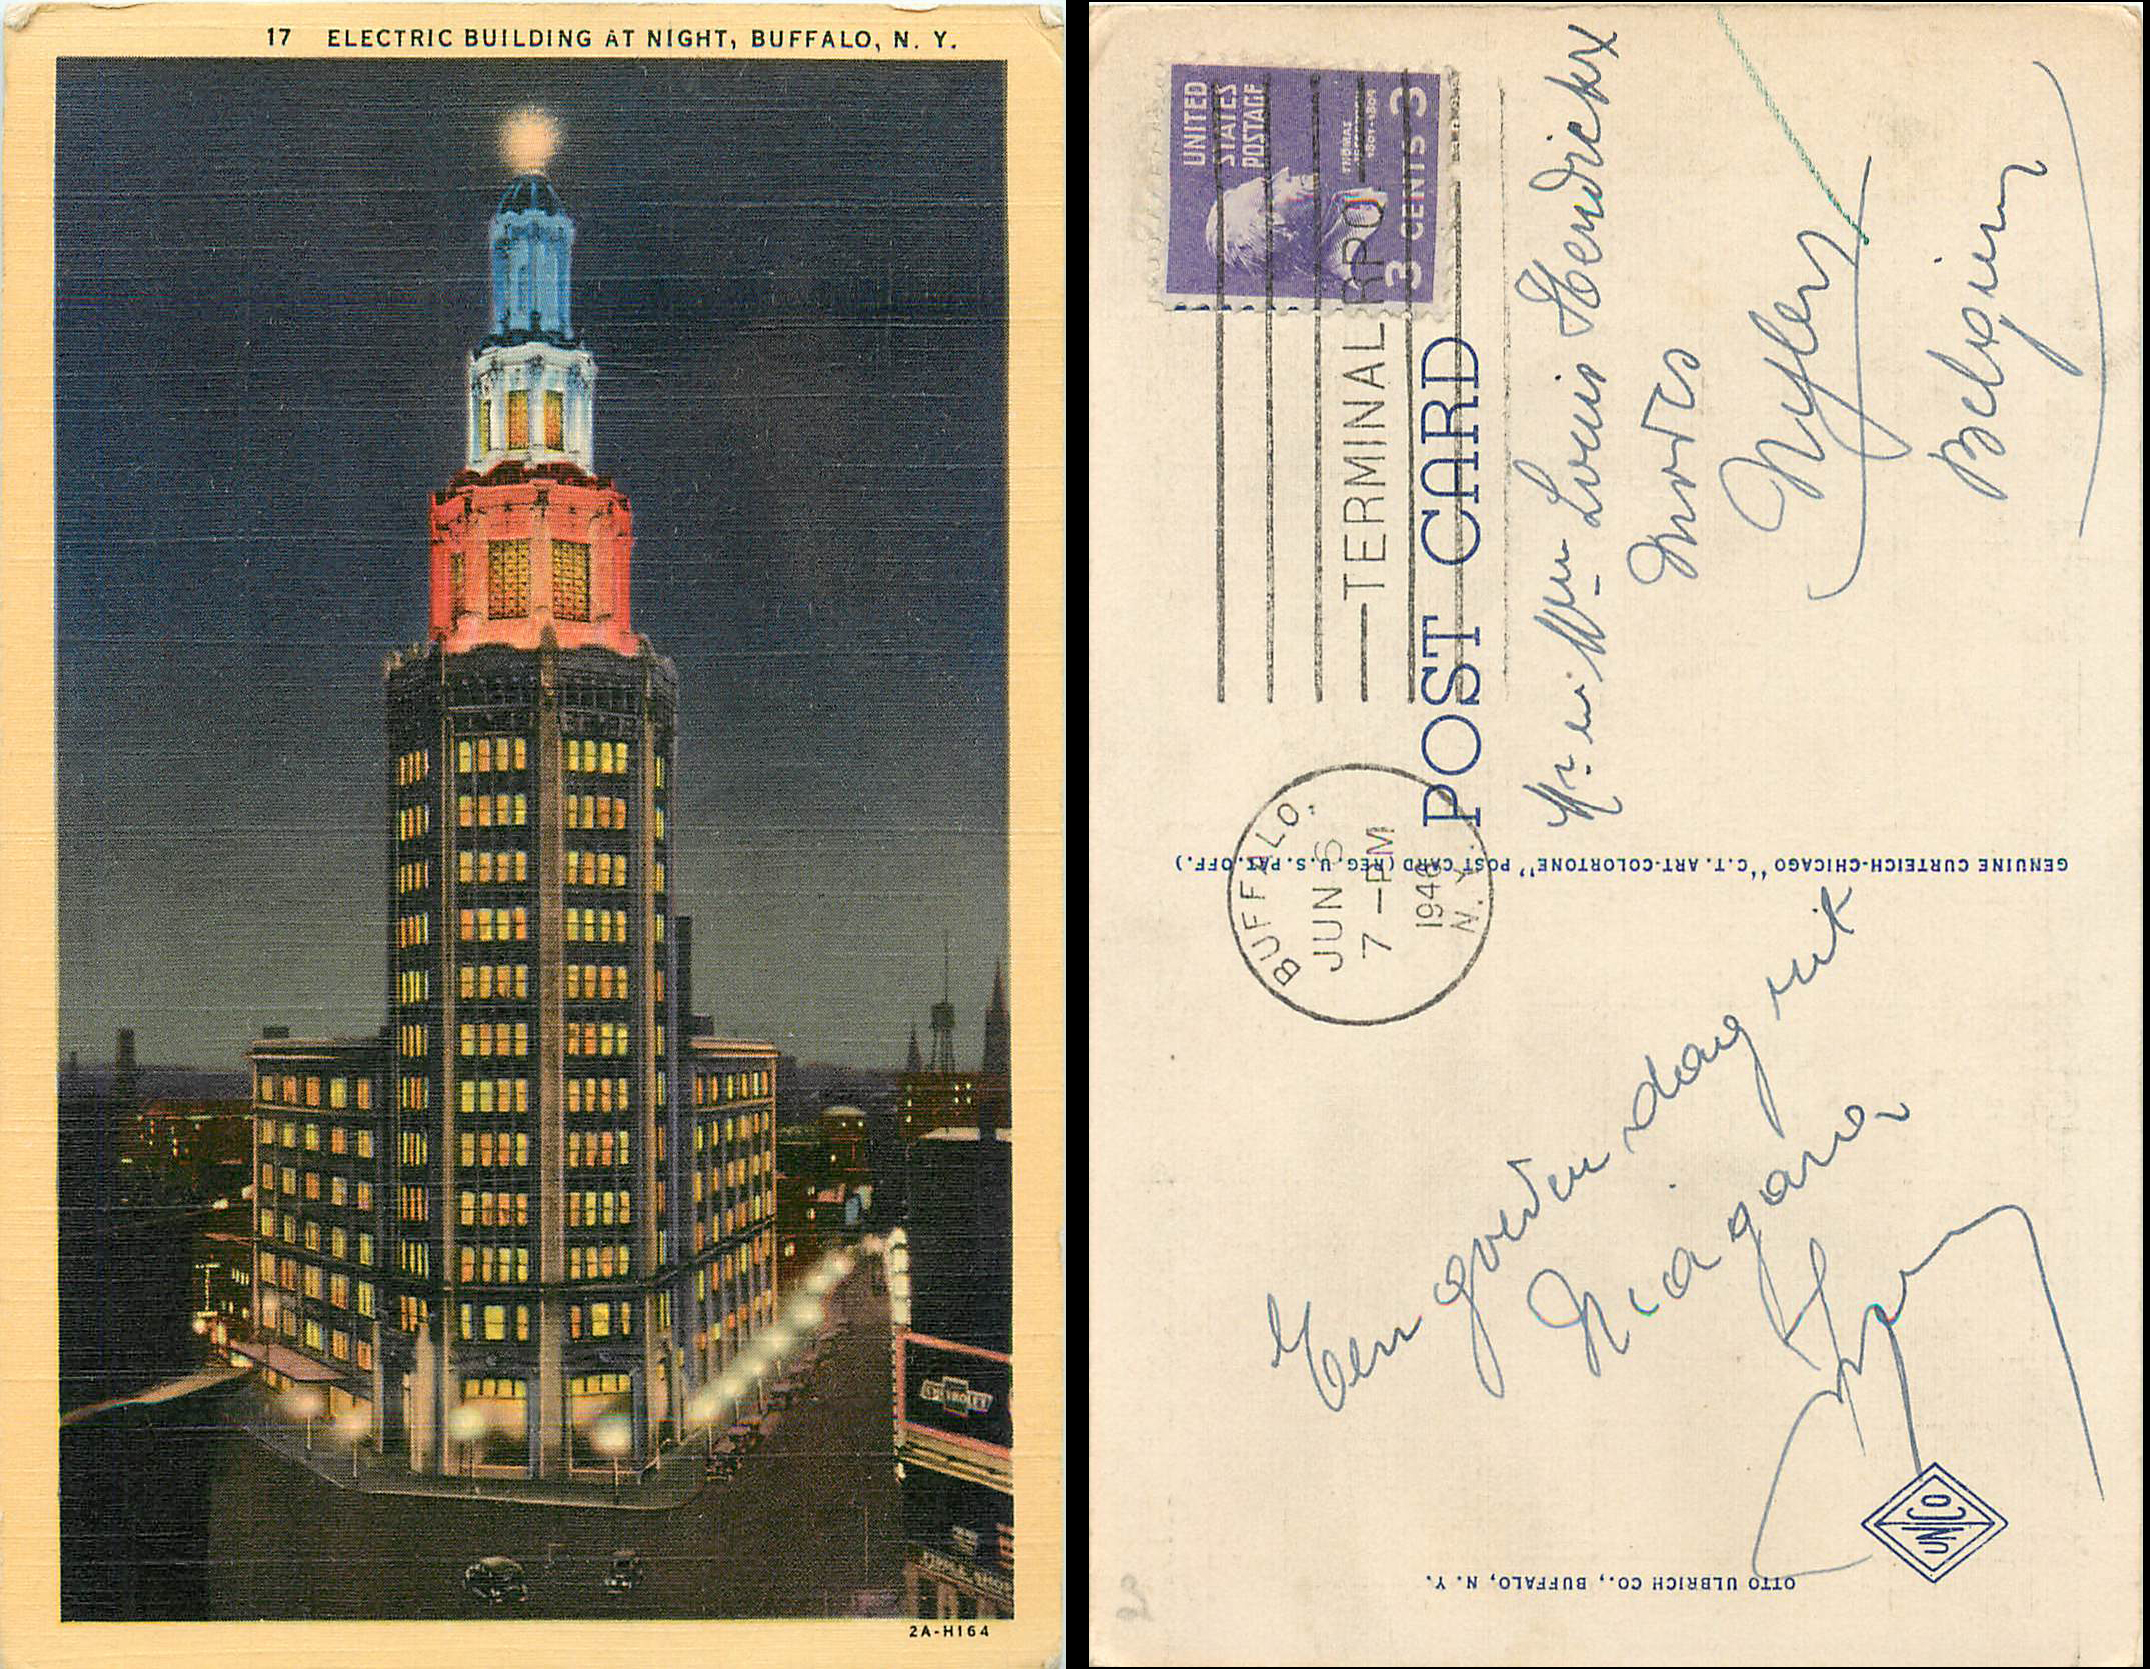 17 ELECTRIC BUILDING AT NIGHT, BUFFALO, N. Y.
CHEVROLET
2A-H164
UNITED
STATES
POSTAGE
THOMAS
JEFFERSON
1801-1809
3 CENTS 3
TERMINAL RPO
BUFFALO,
JUN 6
7-PM
1948
N.Y.
POST CARD
Mr en Mm Louis Hendrickx
Nijlen
Belgium
GENUINE CURTEICH-CHICAGO "C.T. ART-COLORTONE" POST CARD (REG. U.S. PAT. OFF.)
Een goeden dag uit
Niagara,
UNICO
OTTO ULBRICH CO., BUFFALO, N. Y.